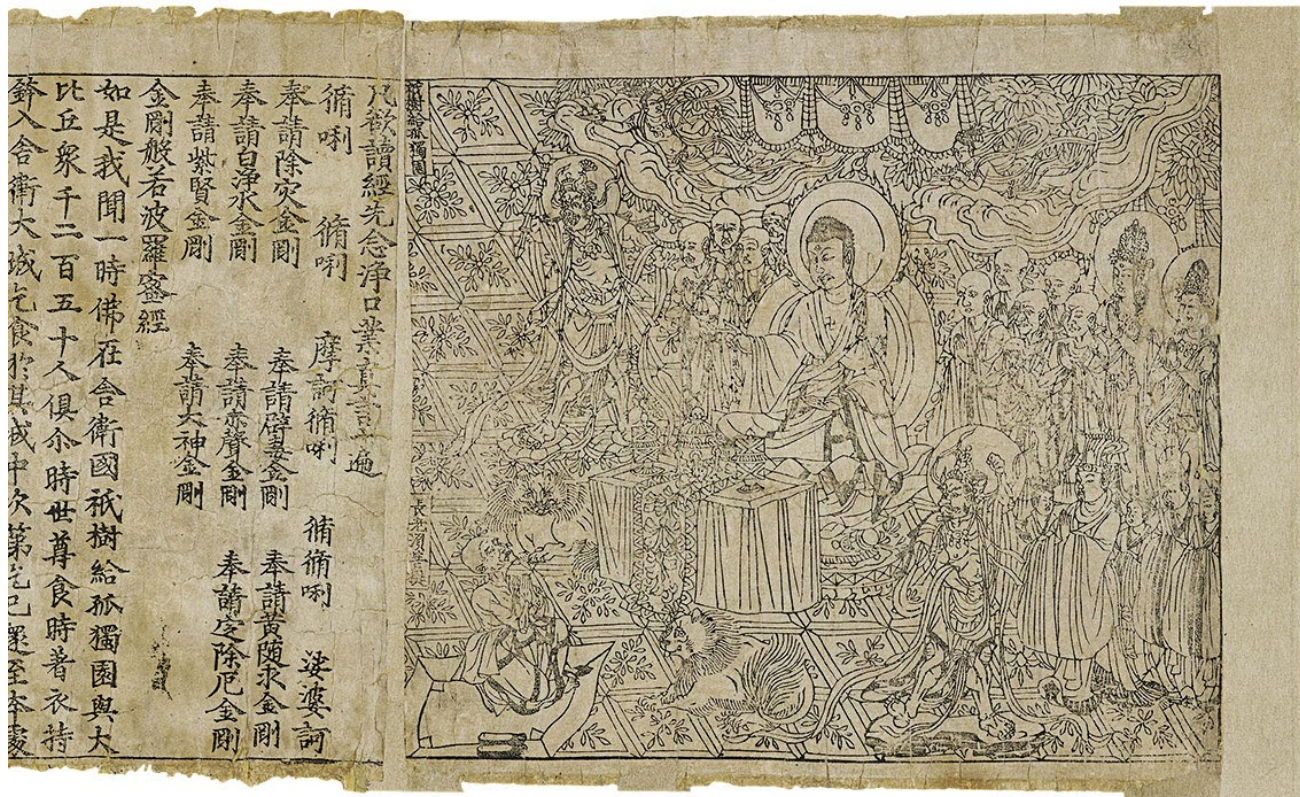 祇樹給孤獨園
長老須菩提
凡欲讀經先念淨口業真言一遍
脩唎 脩唎 摩訶脩唎 脩脩唎 娑婆訶
奉請除灾金剛 奉請辟毒金剛 奉請黃随求金剛
奉請白淨水金剛 奉請赤聲金剛 奉請定除厄金剛
奉請紫賢金剛 奉請大神金剛
金剛般若波羅蜜經
如是我聞一時佛在舍衛國祇樹給孤獨園與大
比丘衆千二百五十人俱尒時世尊食時著衣持
鉢入舍衛大城乞食於其城中次第乞已還至本處